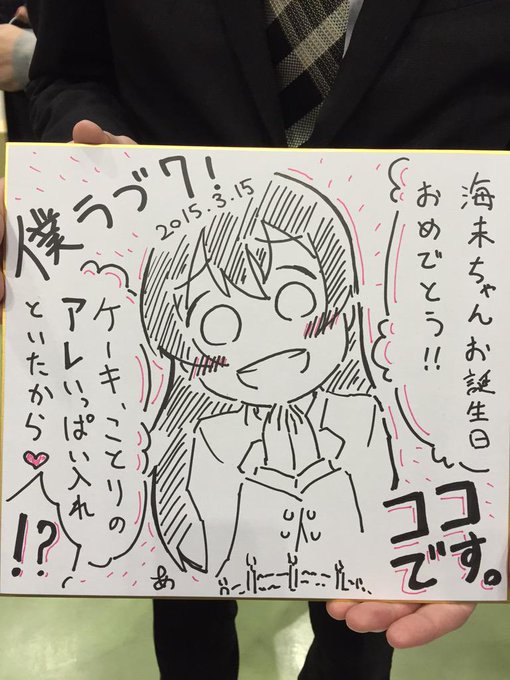 海未ちゃんお誕生日
おめでとう!!
僕ラブ7!
2015.3.15
ケーキ、ことりの
アレいっぱい入れ
といたから♥
!?
ココ
です。
あ